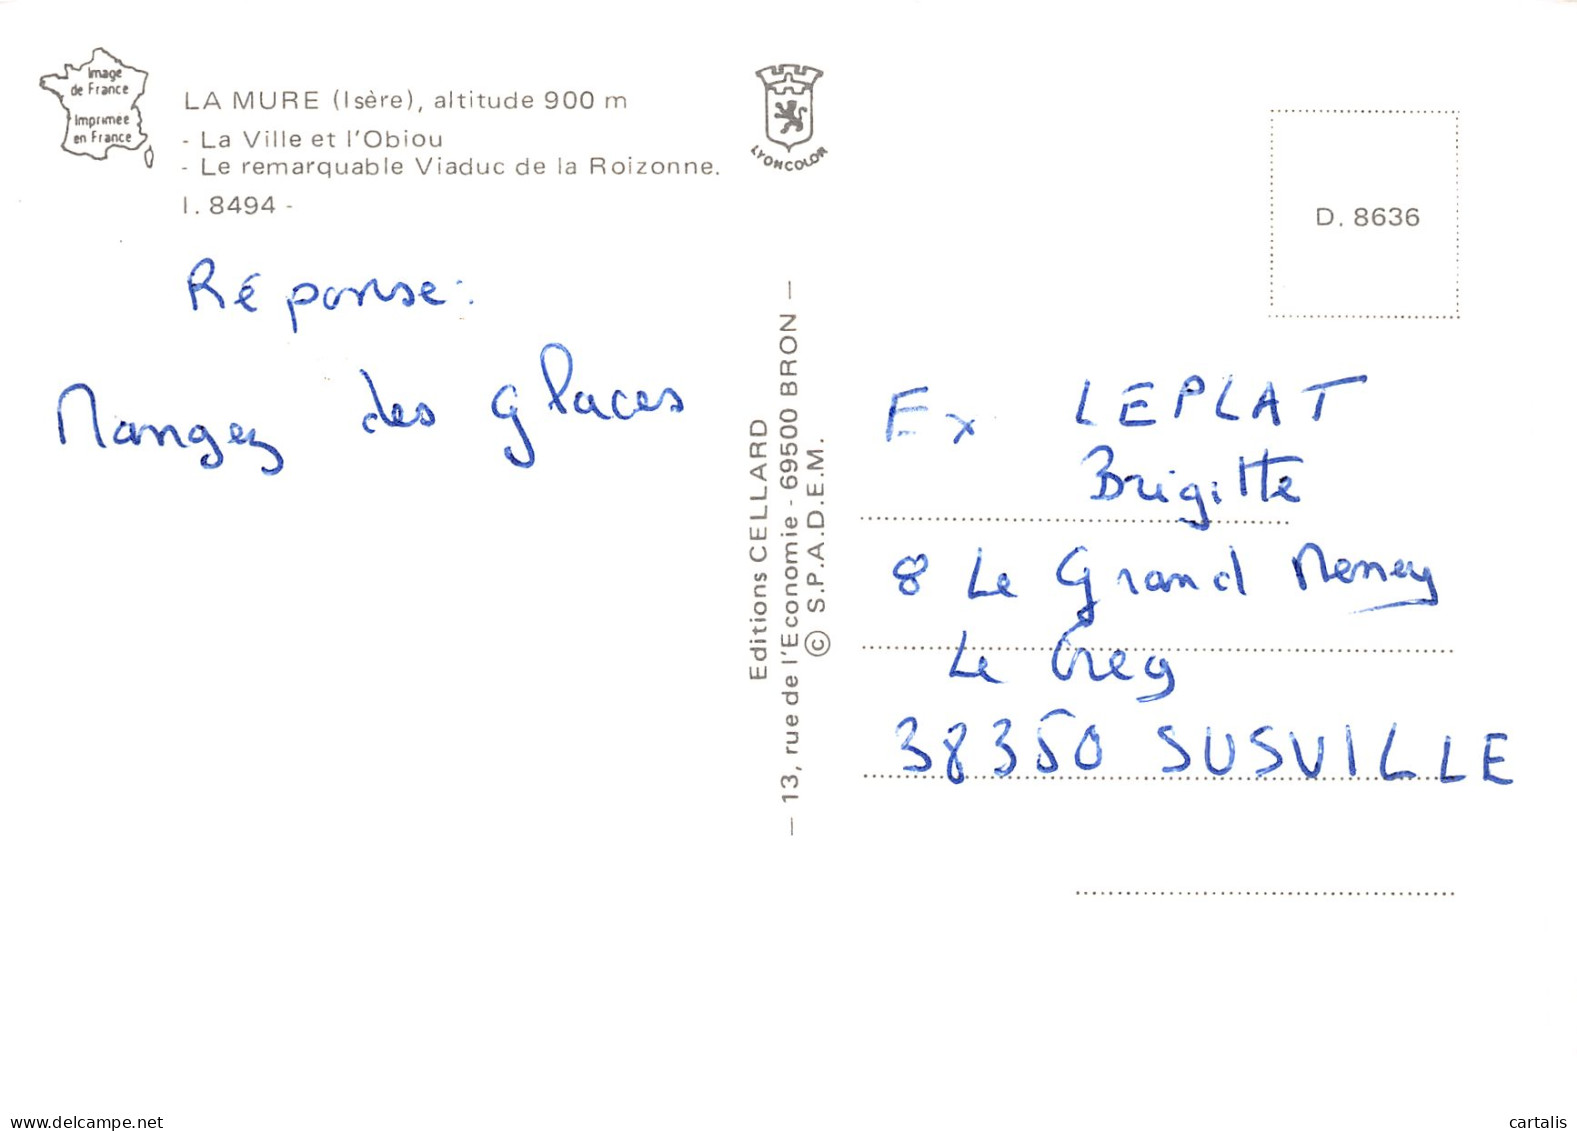 Image
de France
Imprimée
en France
LA MURE (Isère), altitude 900 m
- La Ville et l'Obiou
- Le remarquable Viaduc de la Roizonne.
I. 8494 -
LYONCOLOR
D. 8636
Réponse:
Mangez des glaces
Editions CELLARD
— 13, rue de l'Economie - 69500 BRON —
© S.P.A.D.E.M.
Ex LEPLAT
Brigitte
8 Le Grand
Le Creg
38350 SUSVILLE
www.delcampe.net
cartalis